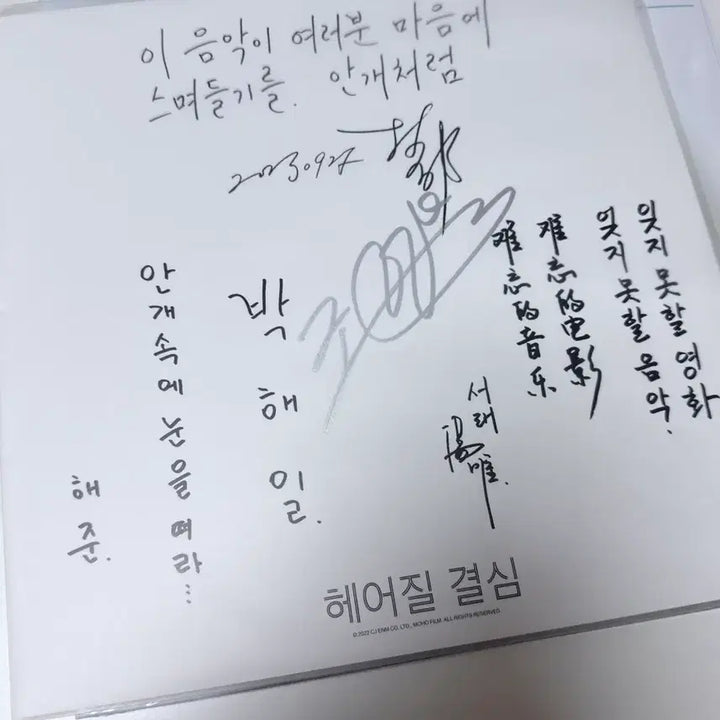 이 음악이 여러분 마음에
스며들기를. 안개처럼
20230927
잊지 못할 영화
잊지 못할 음악.
难忘的电影
难忘的音乐
서래
湯唯.
박해일.
안개속에 눈을 떠라...
해준.
헤어질 결심
© 2022 CJ ENM CO., LTD., MOHO FILM. ALL RIGHTS RESERVED.